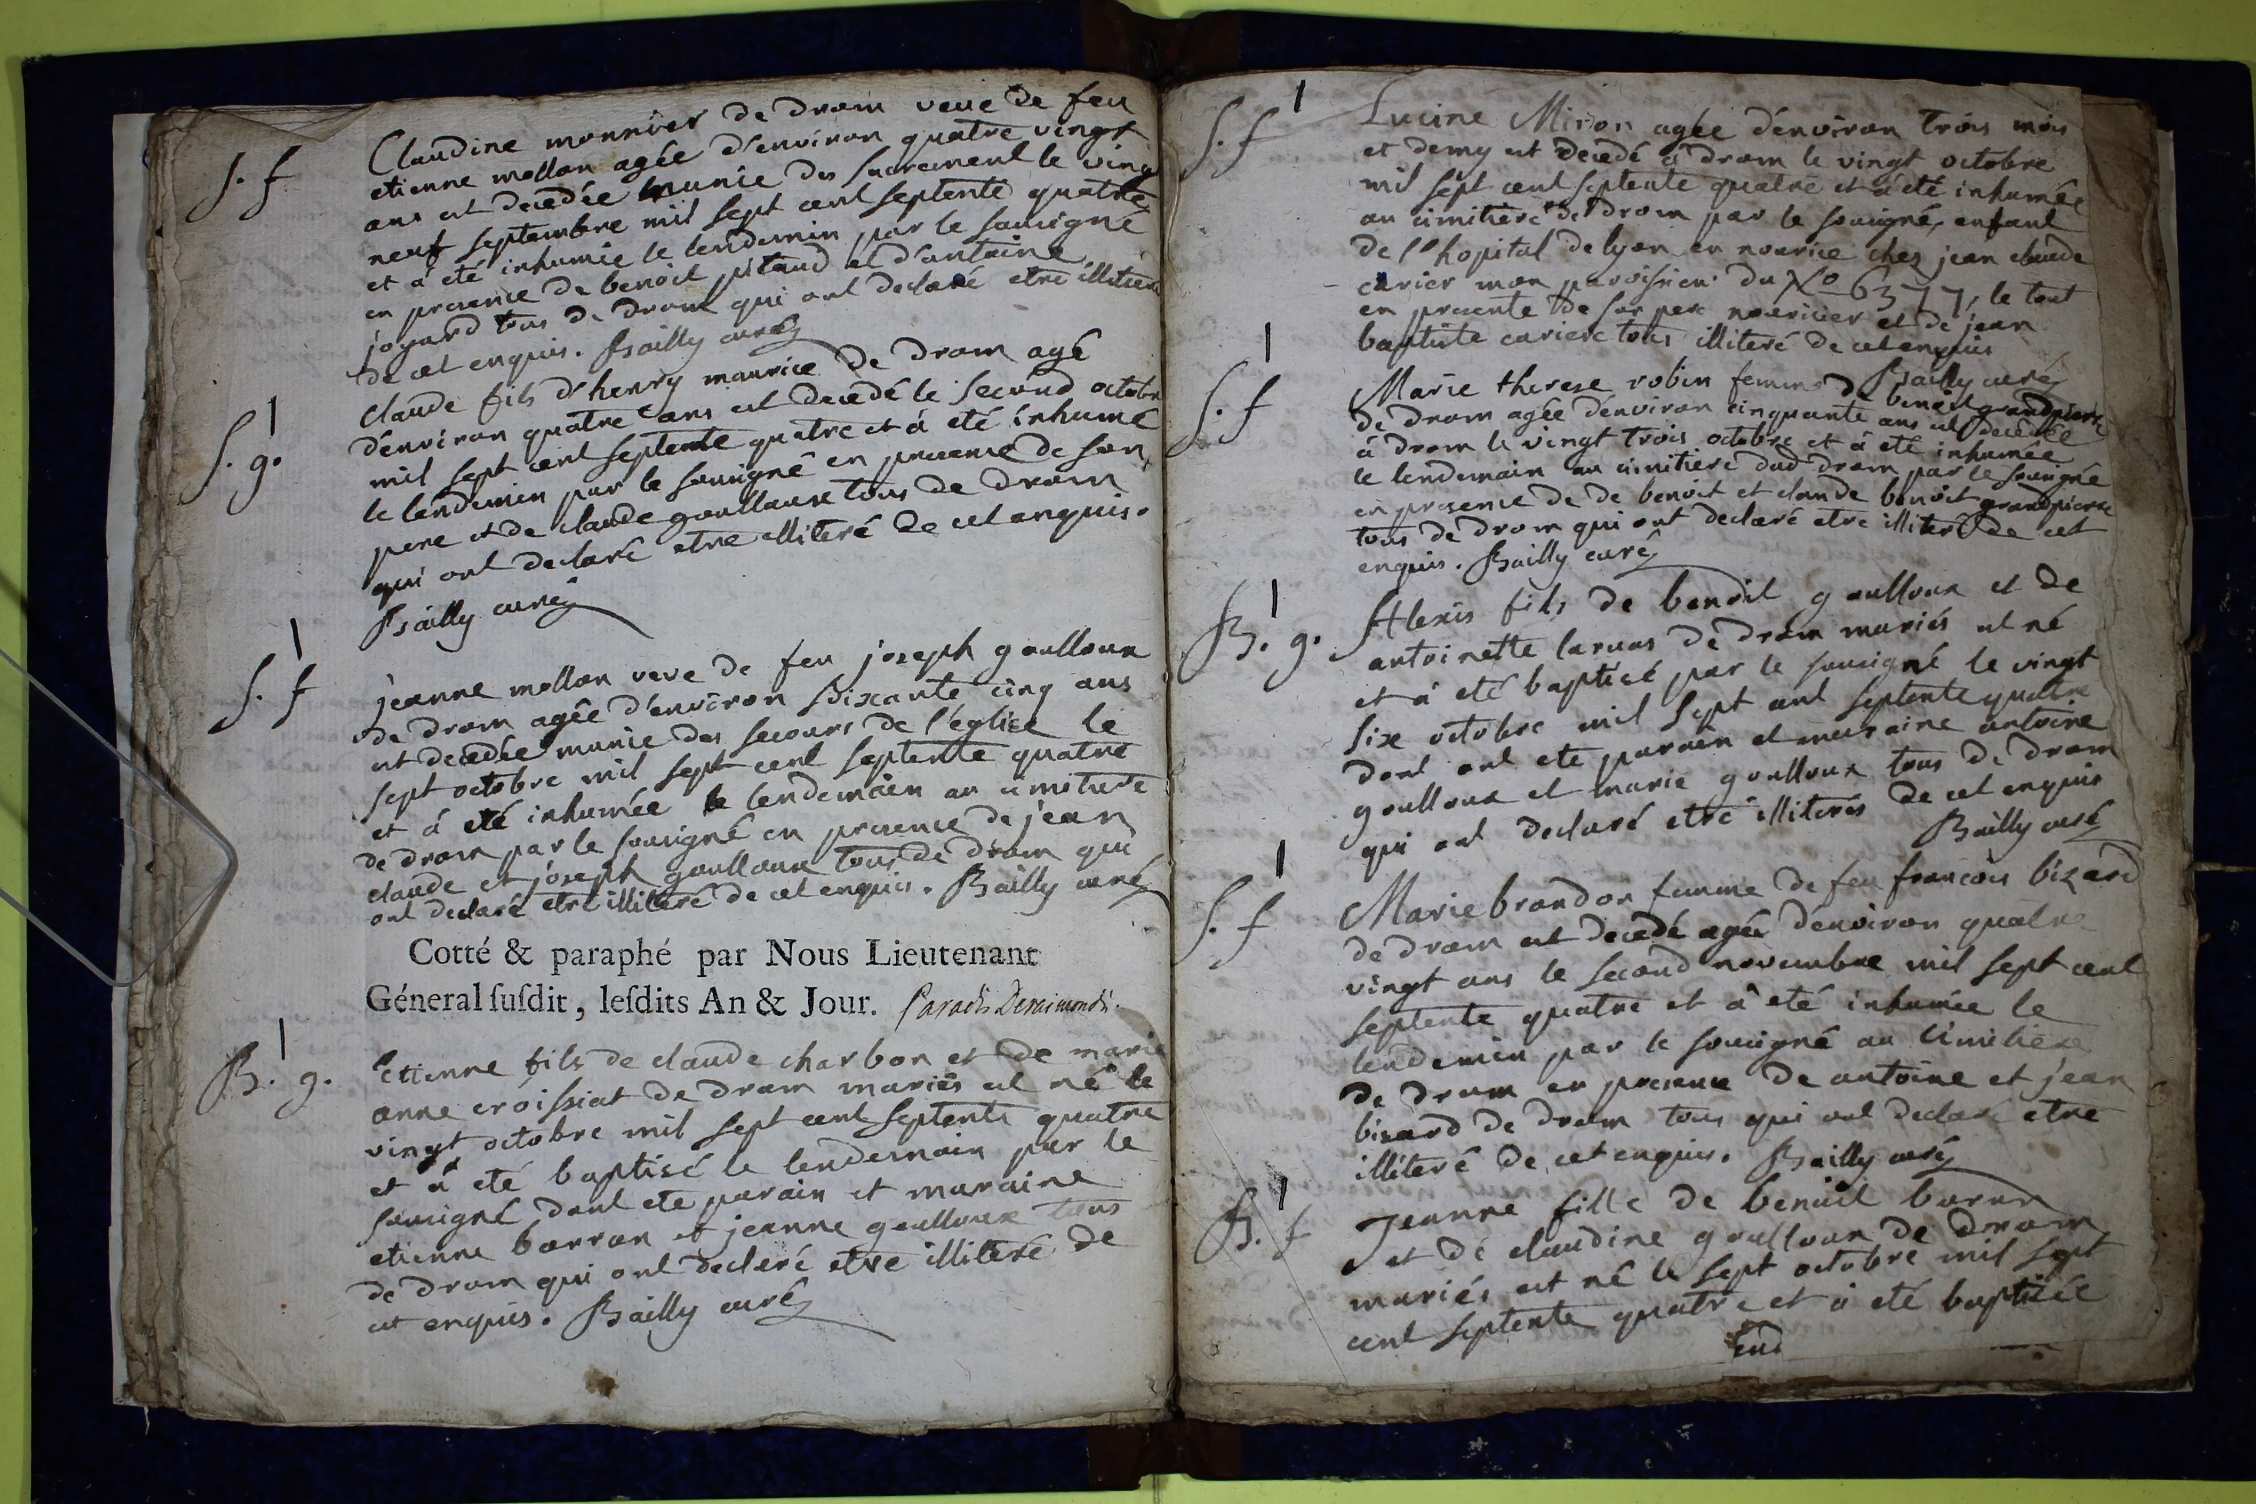 S. f
Claudine monnier de drom veue de feu
etienne mollon agée d'environ quatre vingt
ans est decedée munie des sacrement le vingt
neuf septembre mil sept cent septente quatre
et a été inhumée le lendemin par le sousigné
en presence de benoit pitaud et d'antoine
joyard tous de drom qui ont declaré etre illiteré
de cet enquis. Bailly curé
S. g.
claude fils d'henry maurice de drom agé
d'environ quatre ans est decedé le second octobre
mil sept cent septente quatre et á été inhumé
le lendemin par le sousigné en presence de son
pere et de claude goulloux tous de drom
qui ont declaré etre illiteré de cet enquis.
Bailly curé
S. f
jeanne mollon veve de feu joseph goulloux
de drom agée d'environ soixante cinq ans
est decedée munie des secours de l'eglise le
sept octobre mil sept cent septente quatre
et á été inhumée le lendemain au cimetiere
de drom par le sousigné en presence de jean
claude et joseph goulloux tous de drom qui
ont declaré etre illiteré de cet enquis. Bailly curé
Cotté & paraphé par Nous Lieutenant
Géneral susdit, lesdits An & Jour.
B. g.
Etienne fils de claude charbon et de marie
anne croissiat de drom mariés est né le
vingt octobre mil sept cent septente quatre
et á été baptisé le lendemain par le
sousigné dont ete parain et maraine
etienne borron et jeanne goulloux tous
de drom qui ont declaré etre illiteré de
cet enquis. Bailly curé
S. f
Lucine Miron agée d'environ trois mois
et demy est decedé á drom le vingt octobre
mil sept cent septente quatre et á été inhumée
au cimitiere de drom par le sousigné, enfant
de l'hopital de lyon en nourice chez jean claude
carier mon paroisien du No 6377, le tout
en presente de son pere nouricier et de jean
baptiste cariere tous illiteré de cet enquis
Bailly curé
S. f
Marie therese robin femme de benoit grandpierre
de drom agée d'environ cinquante ans est decedée
à drom le vingt trois octobre et á été inhumée
le lendemain au cimitiere dud drom par le sousigné
en presence de de benoit et claude benoit grandpierre
tous de drom qui ont declaré etre illiteré de cet
enquis. Bailly curé
B. g.
Alexis fils de benoit goulloux et de
antoinette laruas de drom mariés est né
et á été baptisé par le sousigné le vingt
six octobre mil sept cent septente quatre
dont ont ete parain et maraine antoine
goulloux et marie goulloux tous de drom
qui ont declaré etre illiterés de cet enquis
Bailly curé
S. f
Marie brondon femme de feu francois bizard
de drom est decedé agée d'environ quatre
vingt ans le second novembre mil sept cent
septente quatre et á été inhumée le
lendemin par le sousigné au cimitiere
de drom en presence de antoine et jean
bizard de drom tous qui ont declaré etre
illiteré de cet enquis. Bailly curé
B. f
Jeanne fille de benoit boron
et de claudine goulloux de drom
mariés est né le sept octobre mil sept
cent septente quatre et á été baptisée